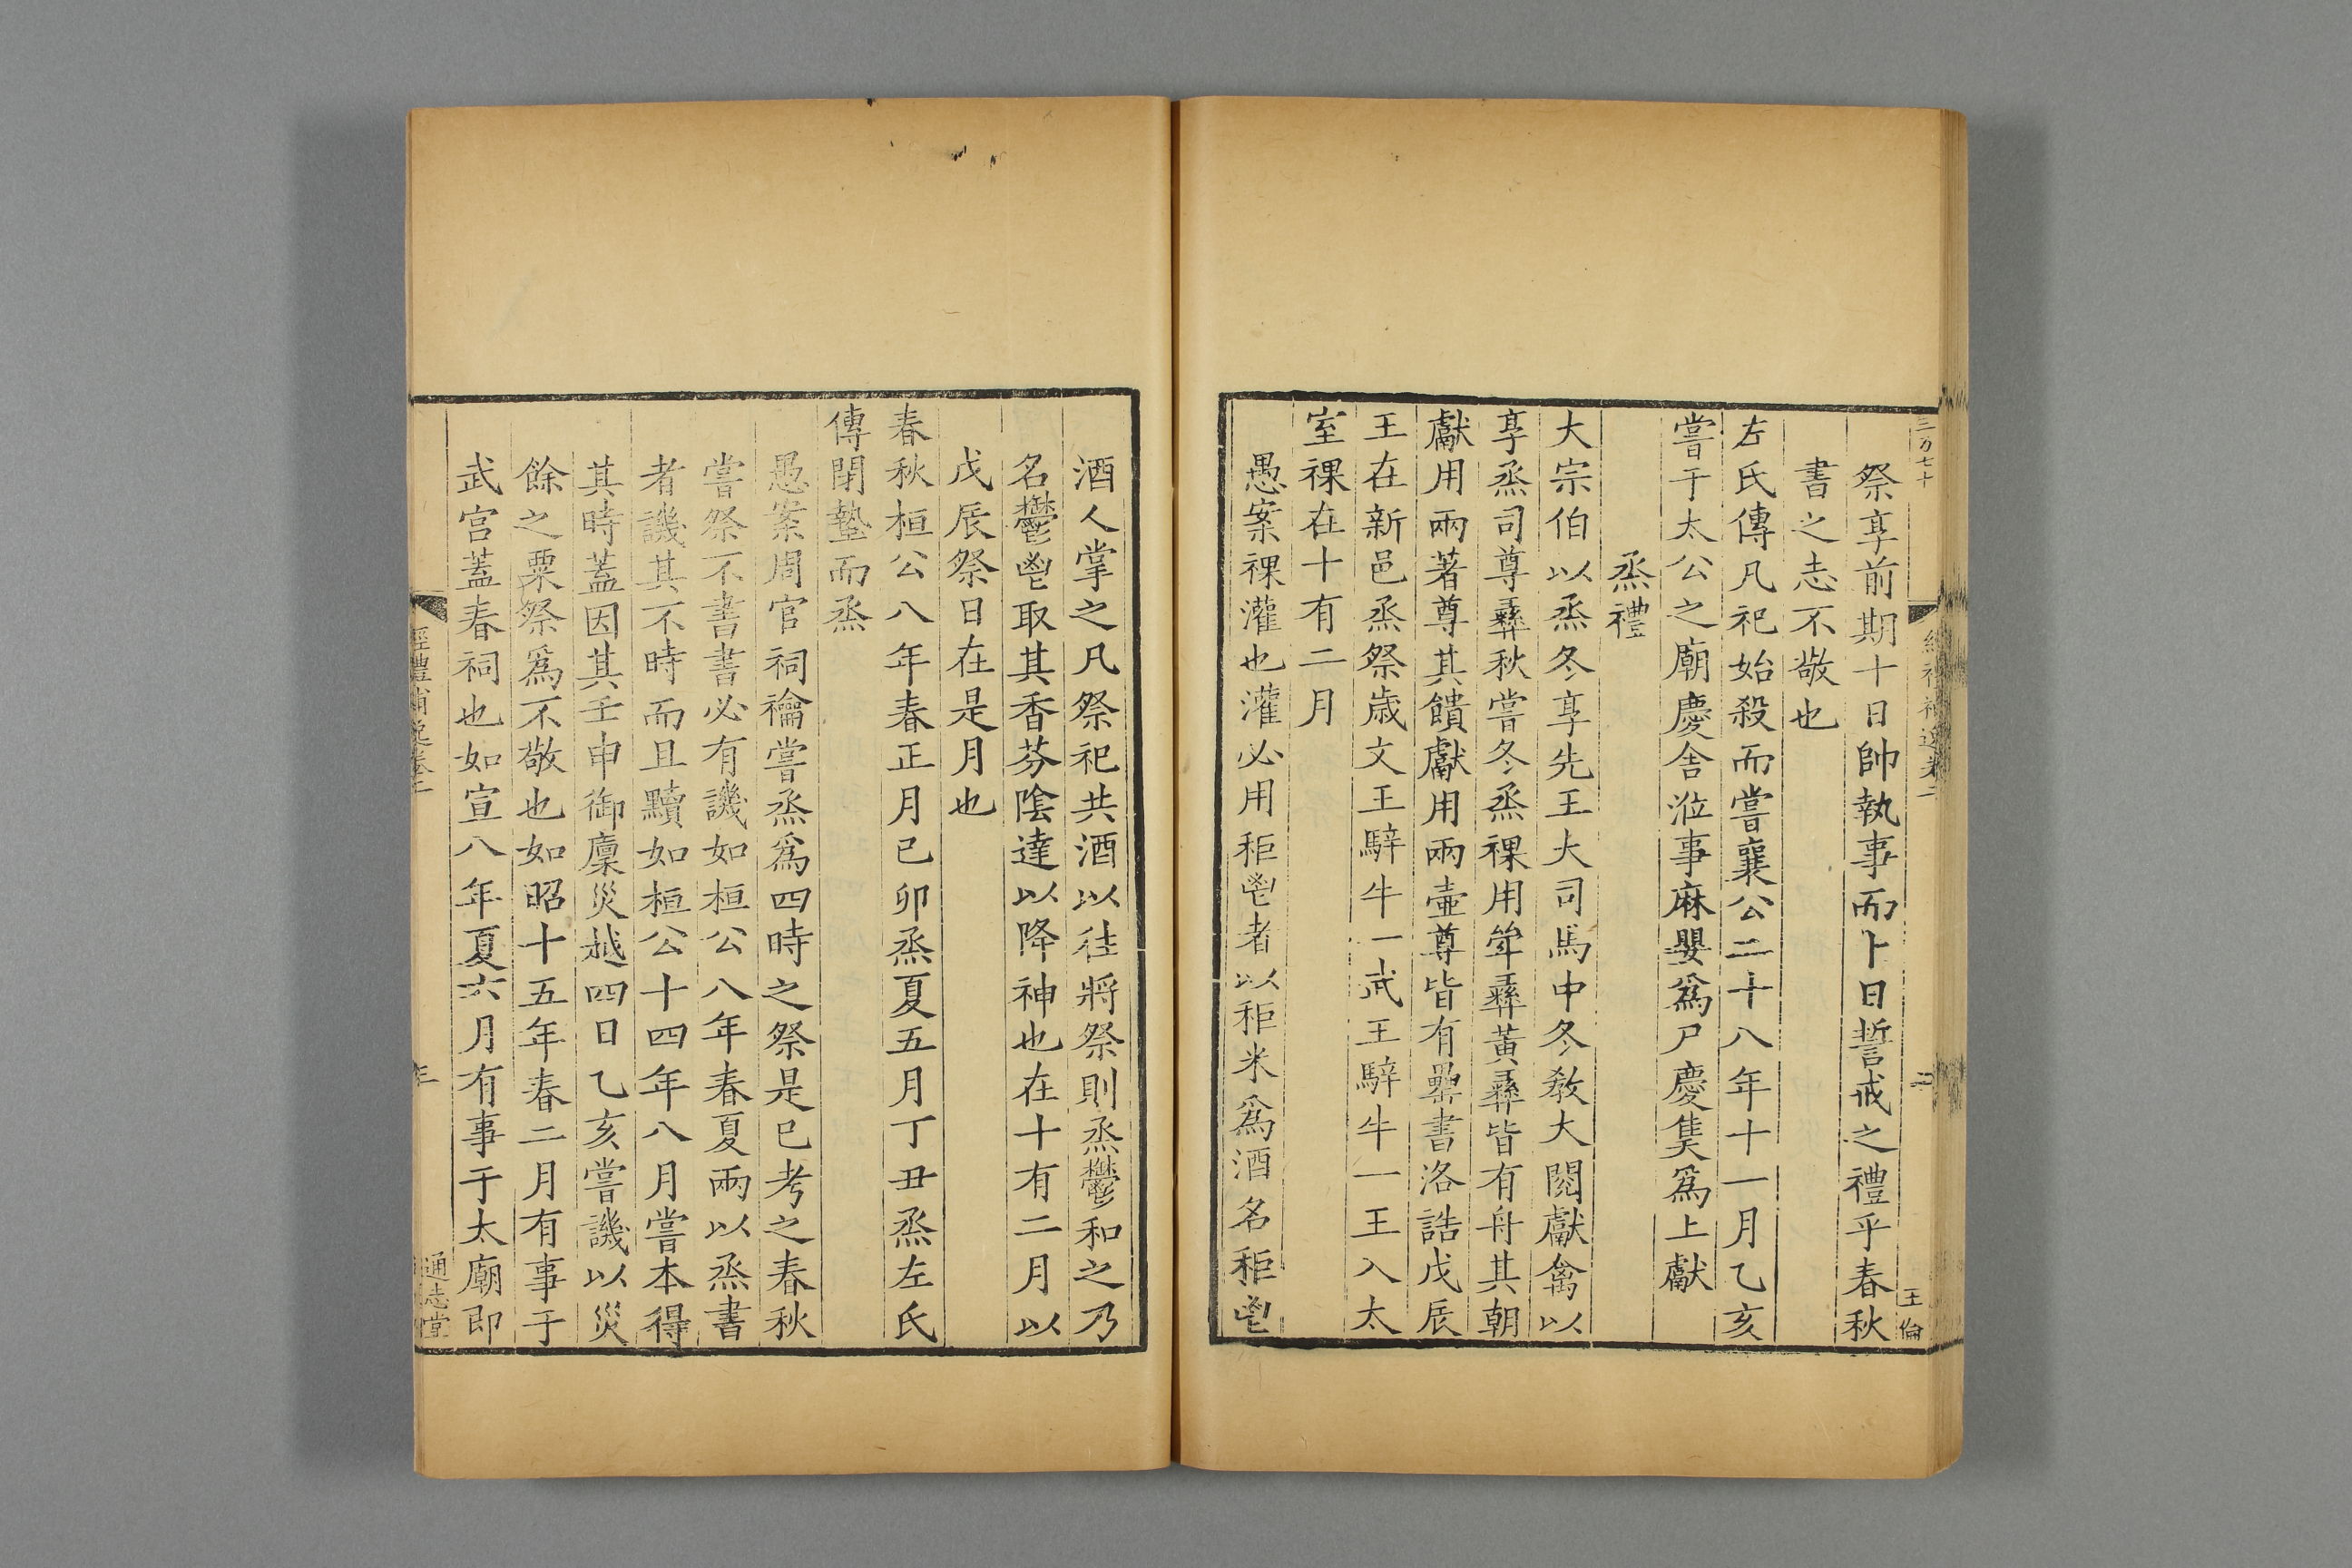 三百七十
祭享前期十日帥執事而卜日誓戒之禮乎春秋
書之志不敬也
左氏傳凡祀始殺而嘗襄公二十八年十一月乙亥
嘗于太公之廟慶舍涖事麻嬰爲尸慶㒞爲上獻
烝禮
大宗伯以烝冬享先王大司馬中冬教大閱獻禽以
享烝司尊彝秋嘗冬烝祼用斝彝黃彝皆有舟其朝
獻用兩著尊其饋獻用兩壷尊皆有罍書洛誥戊辰
王在新邑烝祭歲文王騂牛一武王騂牛一王入太
室祼在十有二月
愚案祼灌也灌必用秬鬯者以秬米爲酒名秬鬯
經禮補逸卷二
二
王倫
酒人掌之凡祭祀共酒以徃將祭則烝鬱和之乃
名鬱鬯取其香芬隂達以降神也在十有二月以
戊辰祭日在是月也
春秋桓公八年春正月已卯烝夏五月丁丑烝左氏
傳閉蟄而烝
愚案周官祠禴嘗烝爲四時之祭是已考之春秋
嘗祭不書書必有譏如桓公八年春夏兩以烝書
者譏其不時而且黷如桓公十四年八月嘗本得
其時蓋因其壬申御廩災越四日乙亥嘗譏以災
餘之粟祭爲不敬也如昭十五年春二月有事于
武宫蓋春祠也如宣八年夏六月有事于太廟即
經禮補逸卷二
通志堂